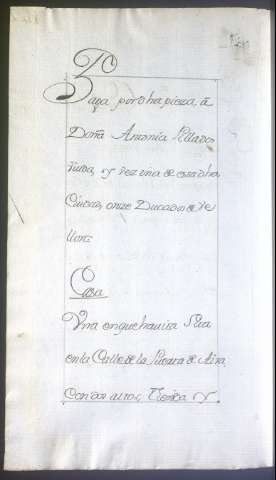 Paga por dha pieza, à
Doña Antonia
viuda, y vezina de esta dha
Ciudad, onze Ducados de Ve
llon:
Casa
Vna en que havita
en la Calle de la de
Con dos altos, Tienda y